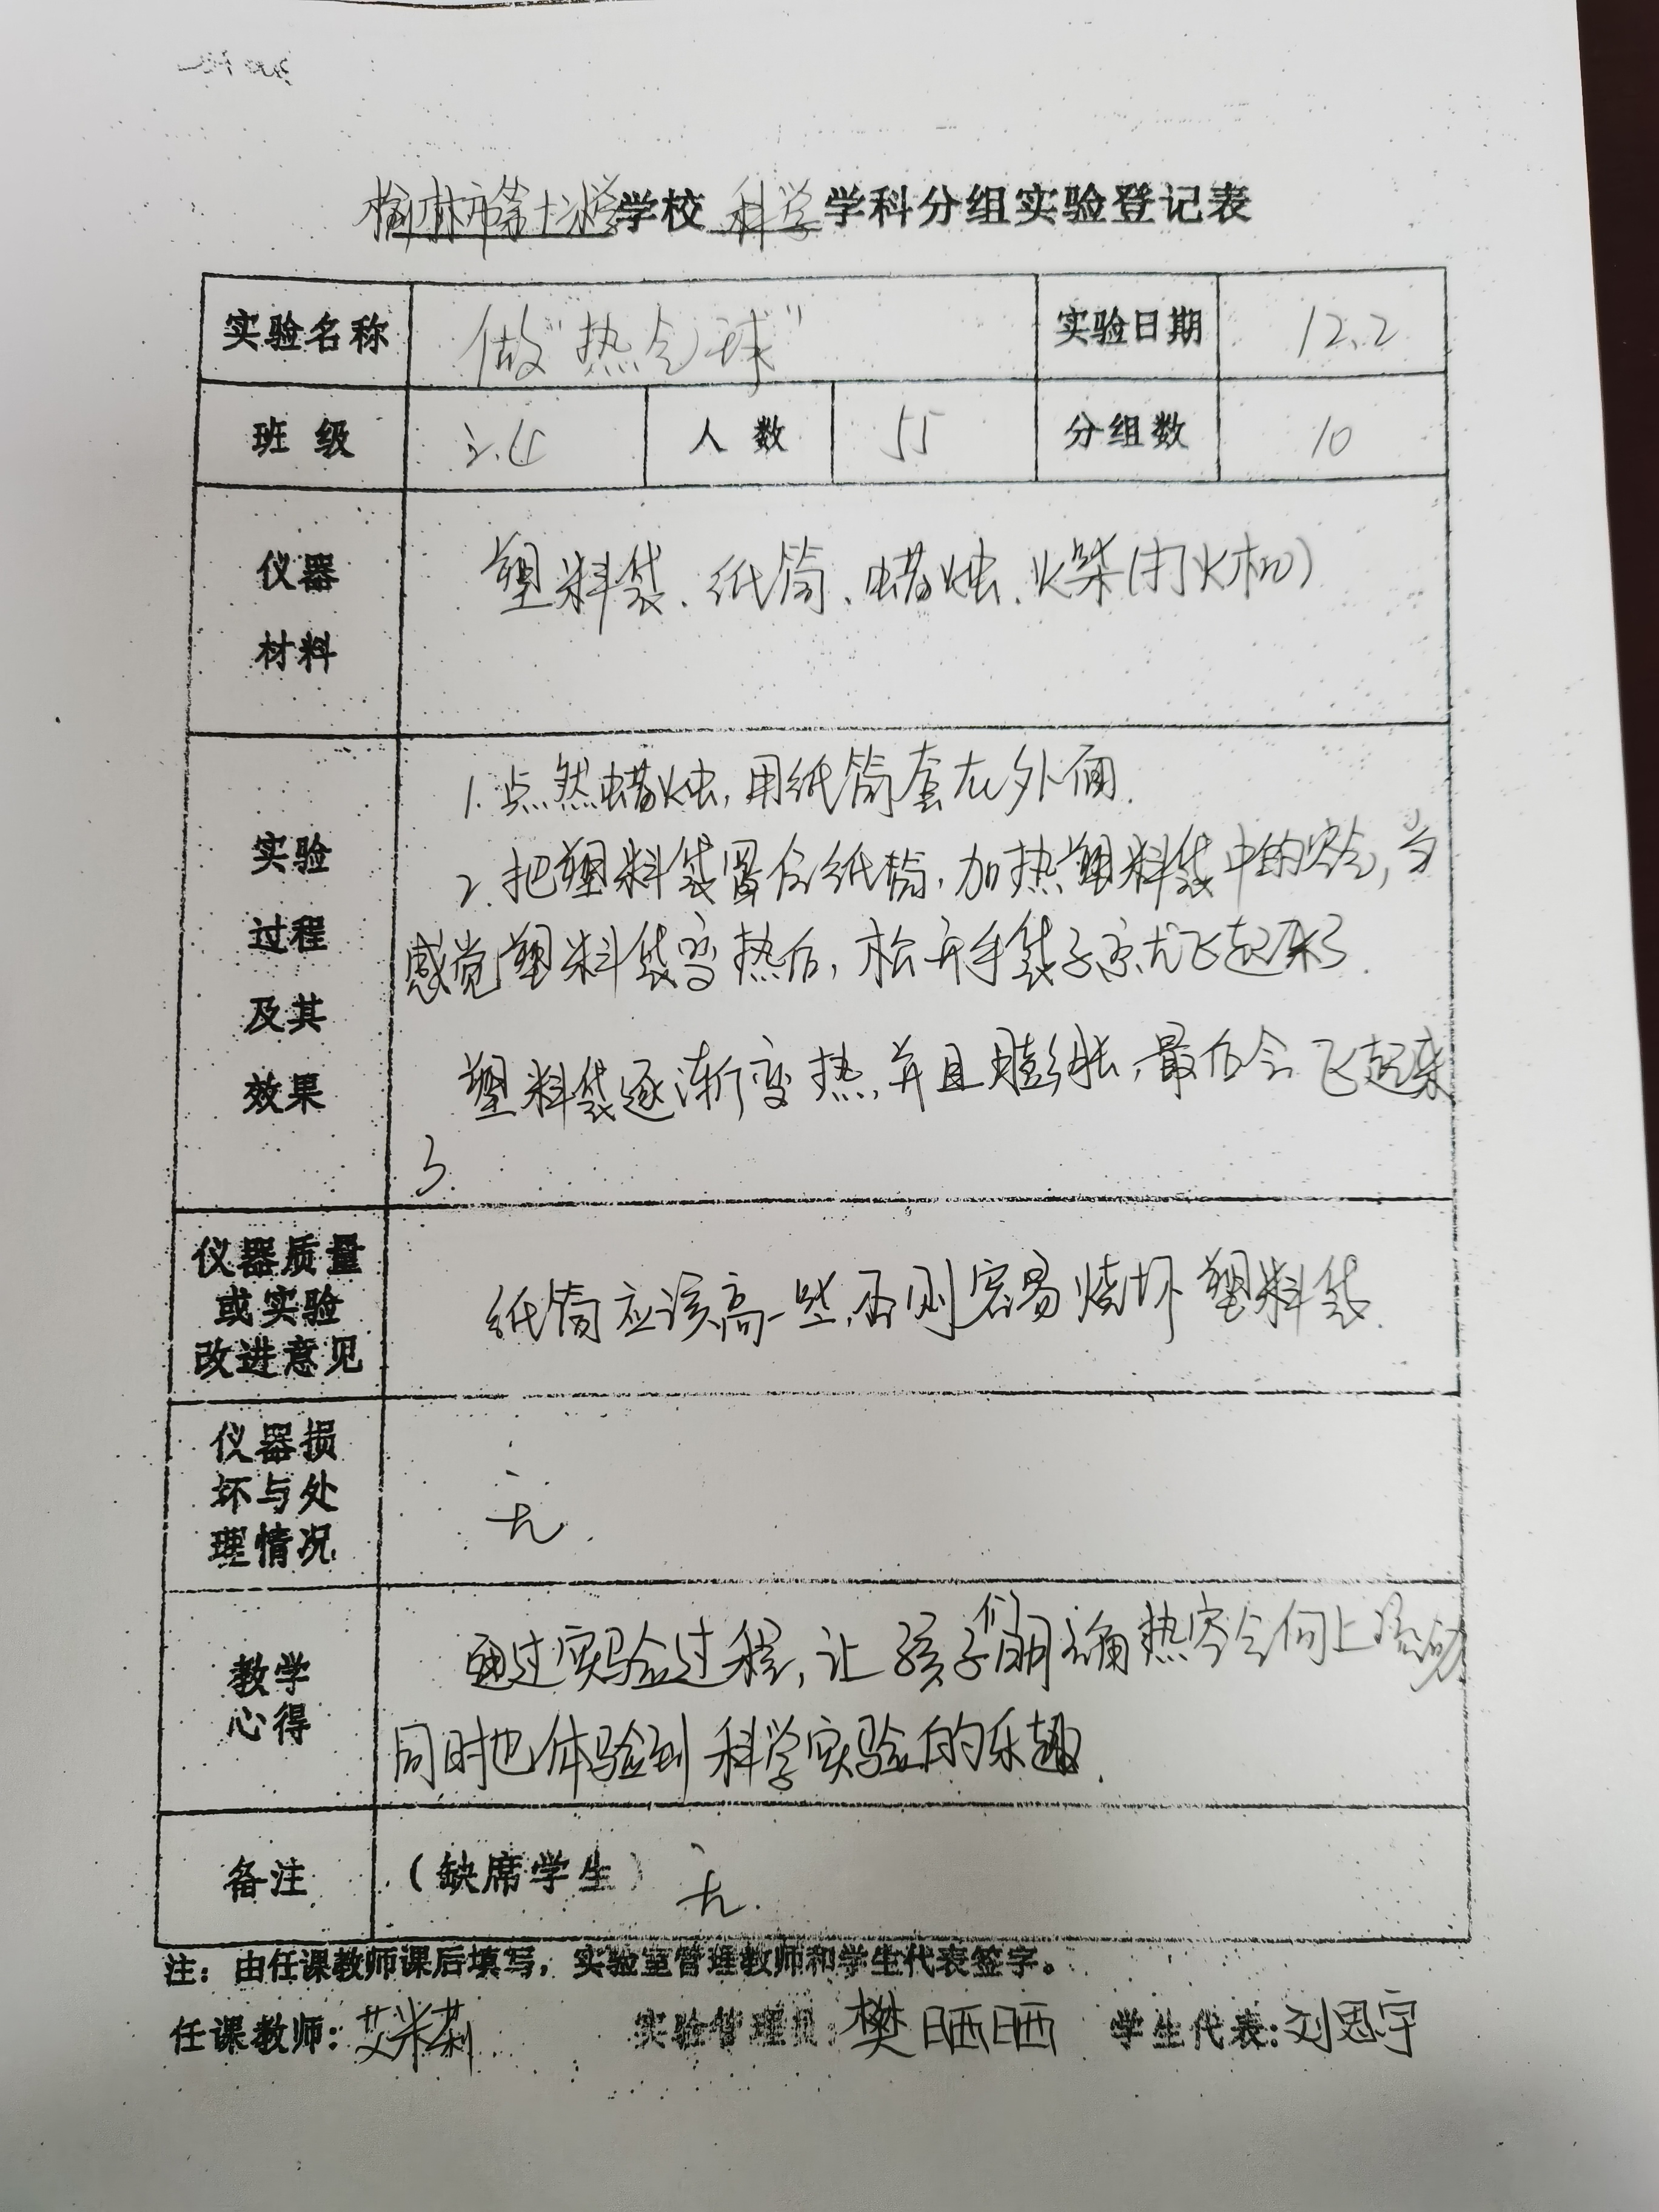 榆林市第十小学学校 科学 学科分组实验登记表
实验名称 做“热气球” 实验日期 12.2
班级 三.4 人数 55 分组数 10
仪器
材料
塑料袋、纸筒、蜡烛、火柴(打火机)
实验
过程
及其
效果
1.点然蜡烛,用纸筒套在外面.
2.把塑料袋置在纸筒,加热塑料袋中的空气,当
感觉塑料袋变热后,松开手袋子就飞起来了.
塑料袋逐渐变热,并且膨胀,最后会飞起来
了.
仪器质量
或实验
改进意见
纸筒应该高一些,否则容易烧坏塑料袋.
仪器损
坏与处
理情况
无.
教学
心得
通过实验过程,让孩子们明确热空气向上流动
同时也体验到科学实验的乐趣.
备注 (缺席学生) 无.
注:由任课教师课后填写,实验室管理教师和学生代表签字。
任课教师:艾米莉 实验管理员:樊晒晒 学生代表:刘思宇